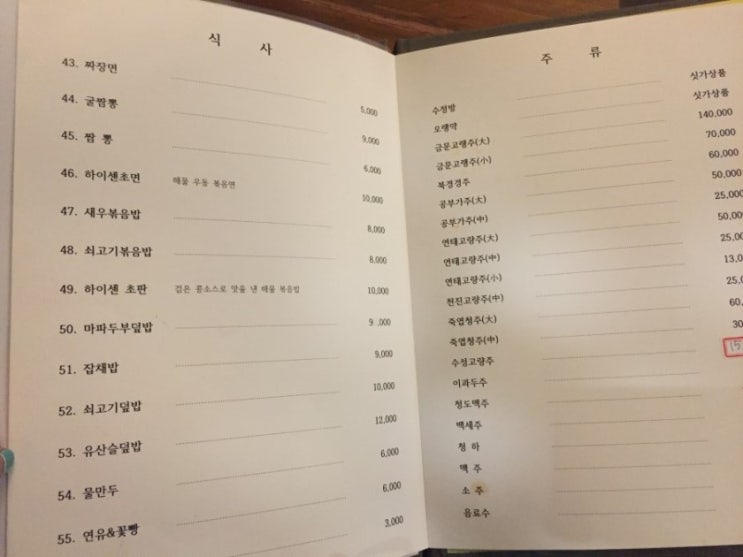 식 사
43. 짜장면 5,000
44. 굴짬뽕 9,000
45. 짬 뽕 6,000
46. 하이센초면 해물 우동 볶음면 10,000
47. 새우볶음밥 8,000
48. 쇠고기볶음밥 8,000
49. 하이센 초판 검은 콩소스로 맛을 낸 해물 볶음밥 10,000
50. 마파두부덮밥 9,000
51. 잡채밥 9,000
52. 쇠고기덮밥 10,000
53. 유산슬덮밥 12,000
54. 물만두 6,000
55. 연유&꽃빵 6,000
3,000
주 류
수정방 싯가상품
싯가상품
금문고량주(大) 140,000
금문고량주(小) 70,000
북경경주 60,000
공부가주(大) 50,000
공부가주(中) 25,000
연태고량주(大) 50,00
연태고량주(中) 25,00
연태고량주(小) 13,0
천진고량주(中) 25,
죽엽청주(大) 60,
죽엽청주(中) 30
수정고량주 15
이과두주
청도맥주
백세주
청 하
맥 주
소 주
음료수